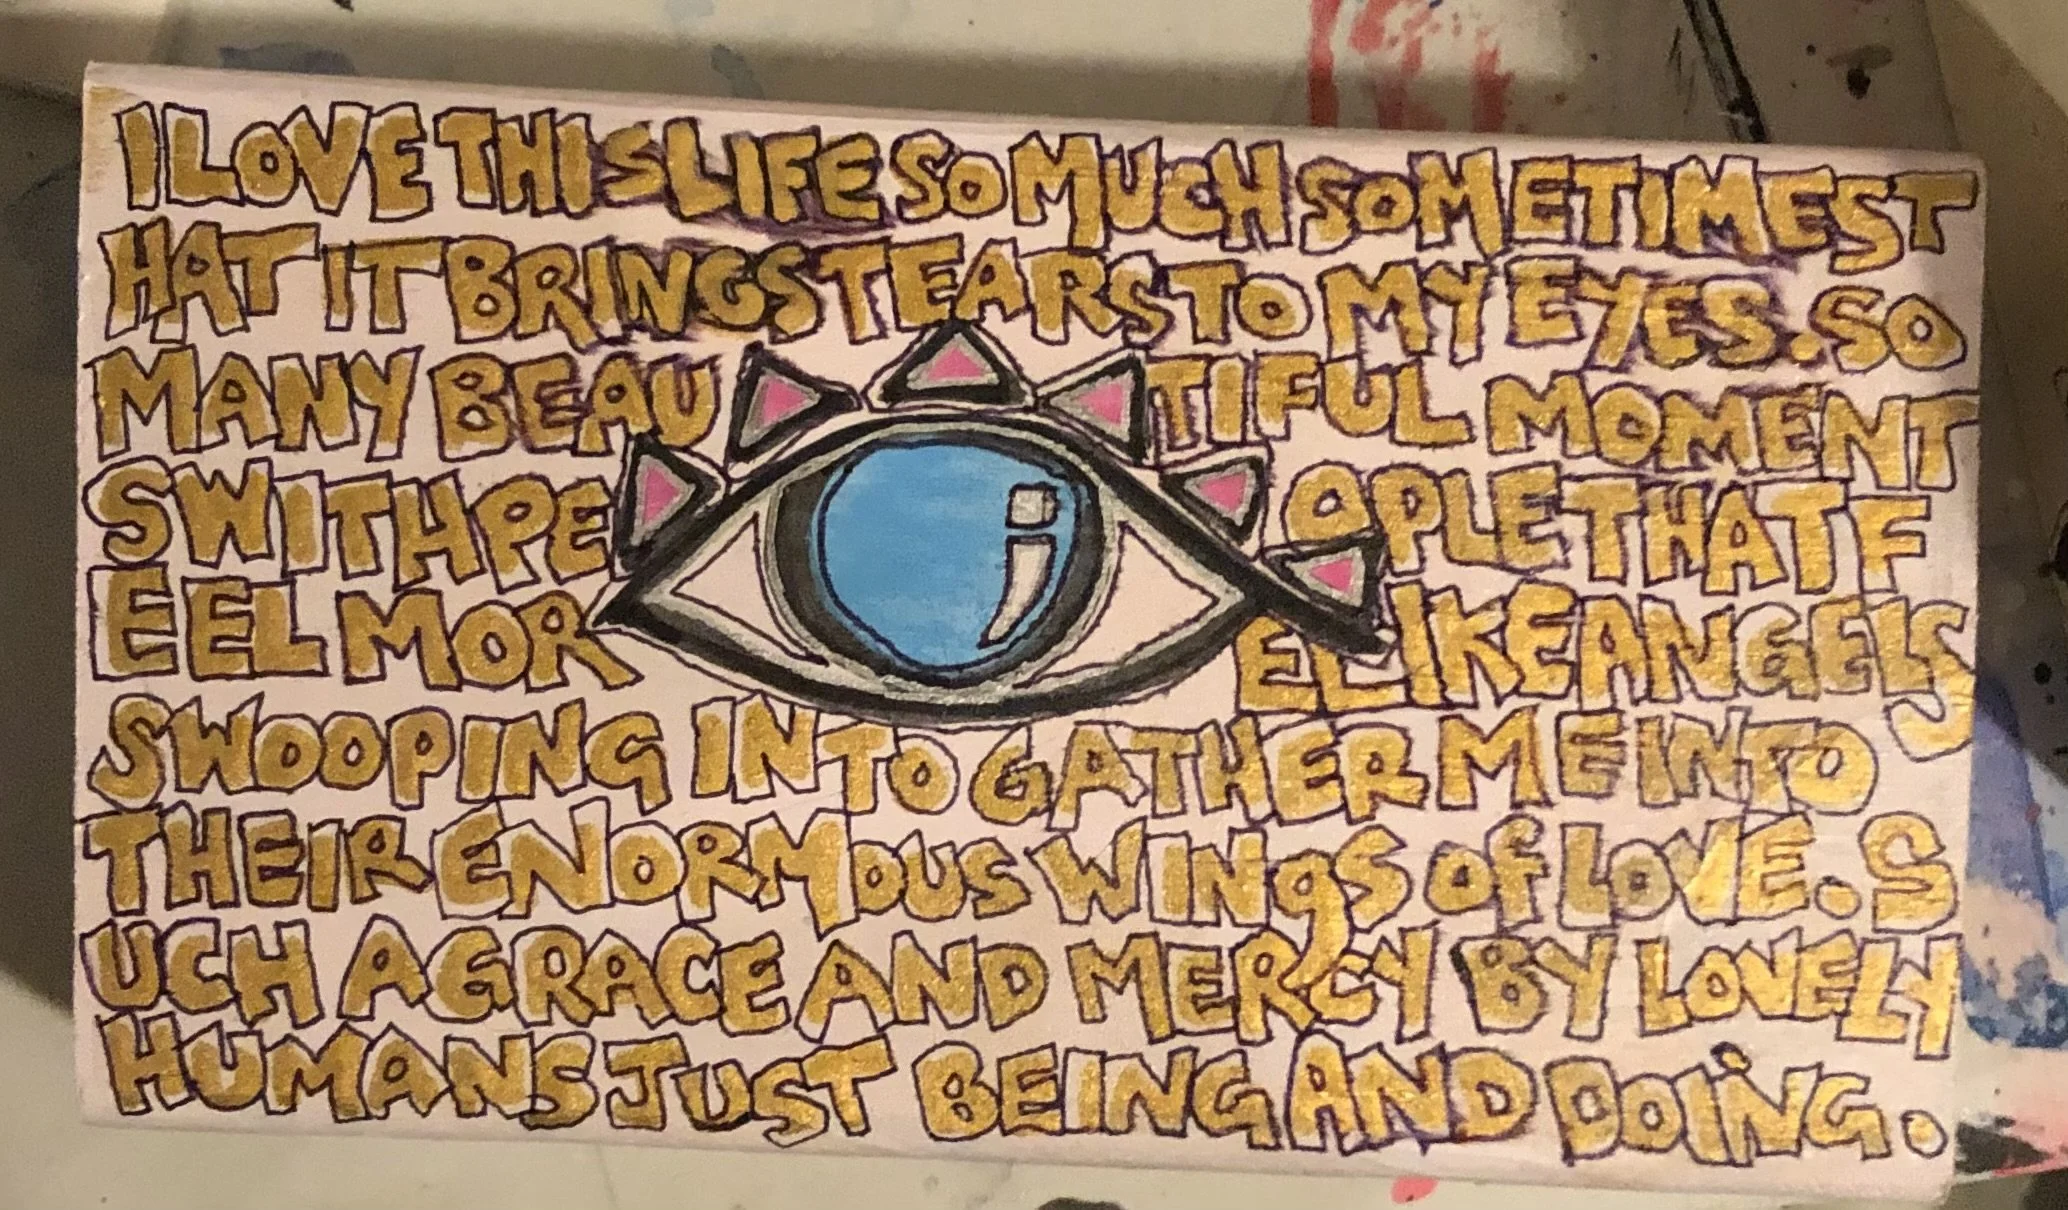 I LOVE THIS LIFE SO MUCH SOMETIMES T
HAT IT BRINGS TEARS TO MY EYES. SO
MANY BEAUTIFUL MOMENT
S WITH PEOPLE THAT F
EEL MORE LIKE ANGELS
SWOOPING IN TO GATHER ME INTO
THEIR ENORMOUS WINGS OF LOVE. S
UCH A GRACE AND MERCY BY LOVELY
HUMANS JUST BEING AND DOING.